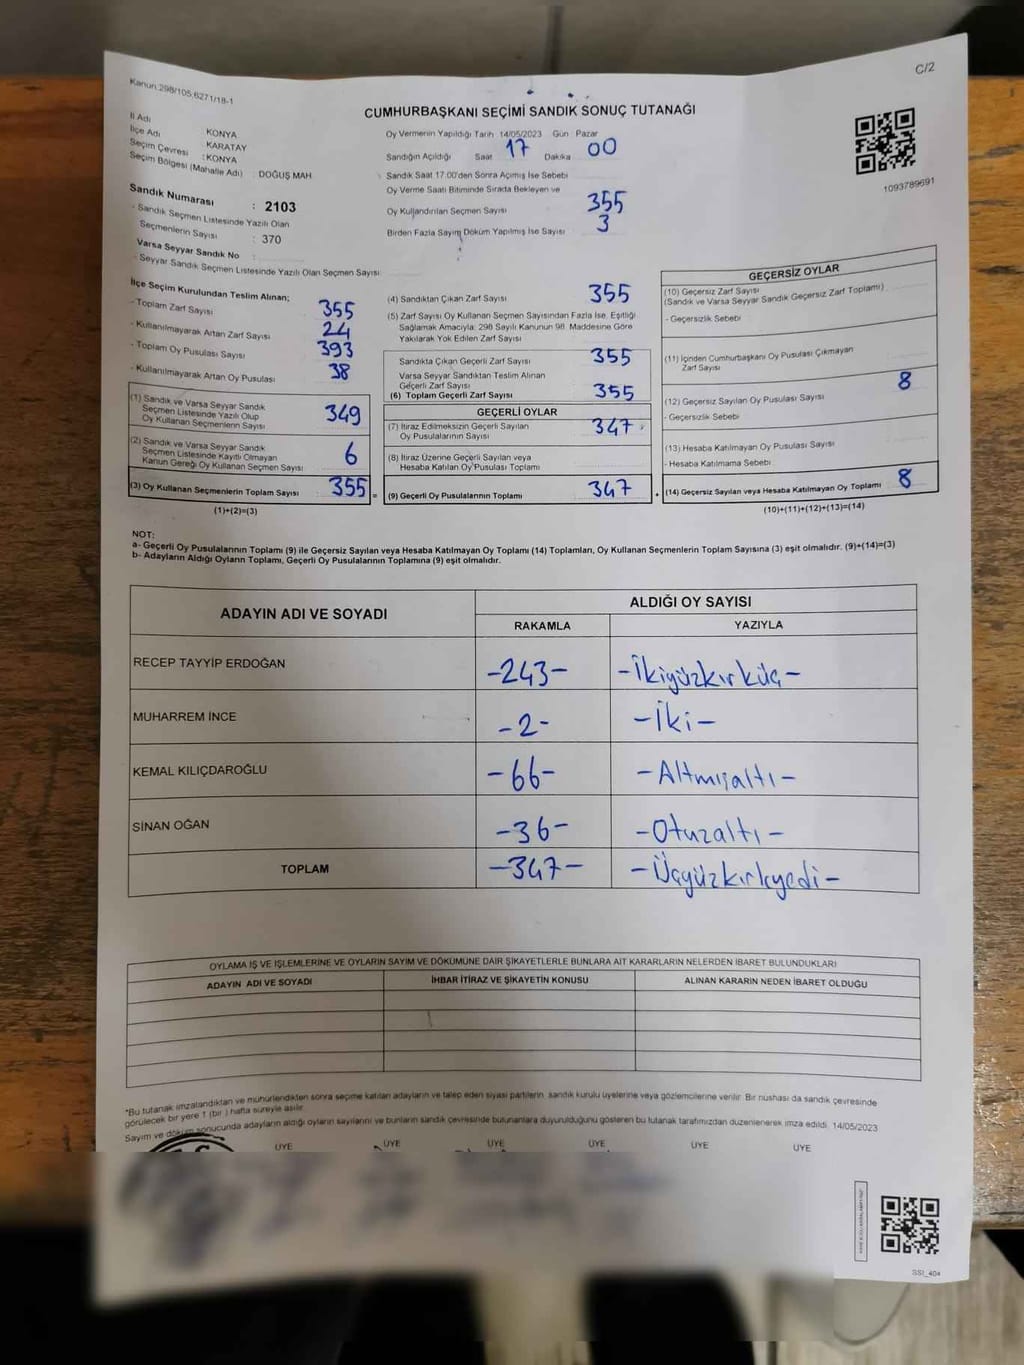 Kanun:298/105,6271/18-1
C/2
CUMHURBAŞKANI SEÇİMİ SANDIK SONUÇ TUTANAĞI
İl Adı : KONYA
İlçe Adı : KARATAY
Seçim Çevresi : KONYA
Seçim Bölgesi (Mahalle Adı) : DOĞUŞ MAH
Sandık Numarası : 2103
- Sandık Seçmen Listesinde Yazılı Olan
Seçmenlerin Sayısı : 370
Varsa Seyyar Sandık No :
- Seyyar Sandık Seçmen Listesinde Yazılı Olan Seçmen Sayısı:
Oy Vermenin Yapıldığı Tarih 14/05/2023 Gün Pazar
Sandığın Açıldığı Saat 17 Dakika 00
Sandık Saat 17:00'den Sonra Açılmış İse Sebebi
Oy Verme Saati Bitiminde Sırada Bekleyen ve
Oy Kullandırılan Seçmen Sayısı 355
Birden Fazla Sayım Döküm Yapılmış İse Sayısı 3
1093789691
İlçe Seçim Kurulundan Teslim Alınan;
- Toplam Zarf Sayısı 355
- Kullanılmayarak Artan Zarf Sayısı 24
- Toplam Oy Pusulası Sayısı 393
- Kullanılmayarak Artan Oy Pusulası 38
(1) Sandık ve Varsa Seyyar Sandık
Seçmen Listesinde Yazılı Olup
Oy Kullanan Seçmenlerin Sayısı 349
(2) Sandık ve Varsa Seyyar Sandık
Seçmen Listesinde Kayıtlı Olmayan
Kanun Gereği Oy Kullanan Seçmen Sayısı 6
(3) Oy Kullanan Seçmenlerin Toplam Sayısı 355 =
(1)+(2)=(3)
(4) Sandıktan Çıkan Zarf Sayısı 355
(5) Zarf Sayısı Oy Kullanan Seçmen Sayısından Fazla İse, Eşitliği
Sağlamak Amacıyla; 298 Sayılı Kanunun 98. Maddesine Göre
Yakılarak Yok Edilen Zarf Sayısı
Sandıkta Çıkan Geçerli Zarf Sayısı 355
Varsa Seyyar Sandıktan Teslim Alınan
Geçerli Zarf Sayısı
(6) Toplam Geçerli Zarf Sayısı 355
GEÇERLİ OYLAR
(7) İtiraz Edilmeksizin Geçerli Sayılan
Oy Pusulalarının Sayısı 347
(8) İtiraz Üzerine Geçerli Sayılan veya
Hesaba Katılan Oy Pusulası Toplamı
(9) Geçerli Oy Pusulalarının Toplamı 347 +
GEÇERSİZ OYLAR
(10) Geçersiz Zarf Sayısı
(Sandık ve Varsa Seyyar Sandık Geçersiz Zarf Toplamı)
- Geçersizlik Sebebi
(11) İçinden Cumhurbaşkanı Oy Pusulası Çıkmayan
Zarf Sayısı
(12) Geçersiz Sayılan Oy Pusulası Sayısı 8
- Geçersizlik Sebebi
(13) Hesaba Katılmayan Oy Pusulası Sayısı
- Hesaba Katılmama Sebebi
(14) Geçersiz Sayılan veya Hesaba Katılmayan Oy Toplamı 8
(10)+(11)+(12)+(13)=(14)
NOT:
a- Geçerli Oy Pusulalarının Toplamı (9) ile Geçersiz Sayılan veya Hesaba Katılmayan Oy Toplamı (14) Toplamları, Oy Kullanan Seçmenlerin Toplam Sayısına (3) eşit olmalıdır. (9)+(14)=(3)
b- Adayların Aldığı Oyların Toplamı, Geçerli Oy Pusulalarının Toplamına (9) eşit olmalıdır.
ADAYIN ADI VE SOYADI ALDIĞI OY SAYISI
RAKAMLA YAZIYLA
RECEP TAYYİP ERDOĞAN -243- -İkiyüzkırküç-
MUHARREM İNCE -2- -İki-
KEMAL KILIÇDAROĞLU -66- -Altmışaltı-
SİNAN OĞAN -36- -Otuzaltı-
TOPLAM -347- -Üçyüzkırkyedi-
OYLAMA İŞ VE İŞLEMLERİNE VE OYLARIN SAYIM VE DÖKÜMÜNE DAİR ŞİKAYETLERLE BUNLARA AİT KARARLARIN NELERDEN İBARET BULUNDUKLARI
ADAYIN ADI VE SOYADI İHBAR İTİRAZ VE ŞİKAYETİN KONUSU ALINAN KARARIN NEDEN İBARET OLDUĞU
*Bu tutanak imzalandıktan ve mühürlendikten sonra seçime katılan adayların ve talep eden siyasi partilerin, sandık kurulu üyelerine veya gözlemcilerine verilir. Bir nüshası da sandık çevresinde
görülecek bir yere 1 (bir ) hafta süreyle asılır.
Sayım ve döküm sonucunda adayların aldığı oyların sayılarını ve bunların sandık çevresinde bulunanlara duyurulduğunu gösteren bu tutanak tarafımızdan düzenlenerek imza edildi. 14/05/2023
ÜYE ÜYE ÜYE ÜYE ÜYE ÜYE
SSI_404